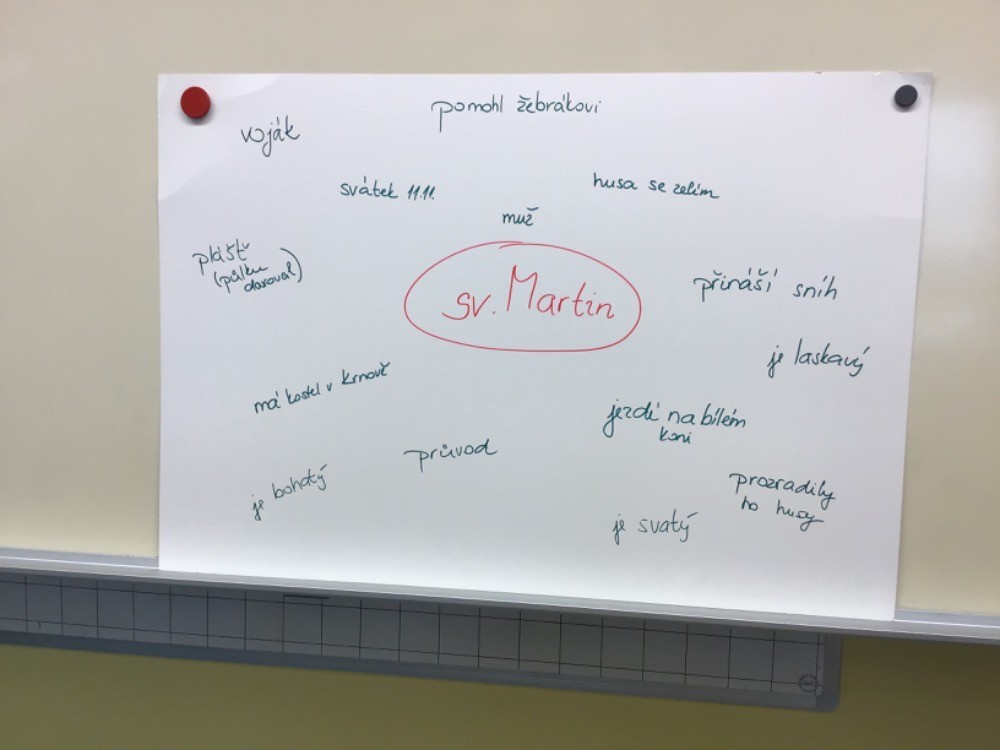 pomohl žebrákovi
voják
svátek 11.11.
husa se zelím
muž
plášť
(půlku
daroval)
sv. Martin
přináší sníh
je laskavý
má kostel v Krnově
jezdí na bílém
koni
průvod
je bohatý
prozradily
ho husy
je svatý